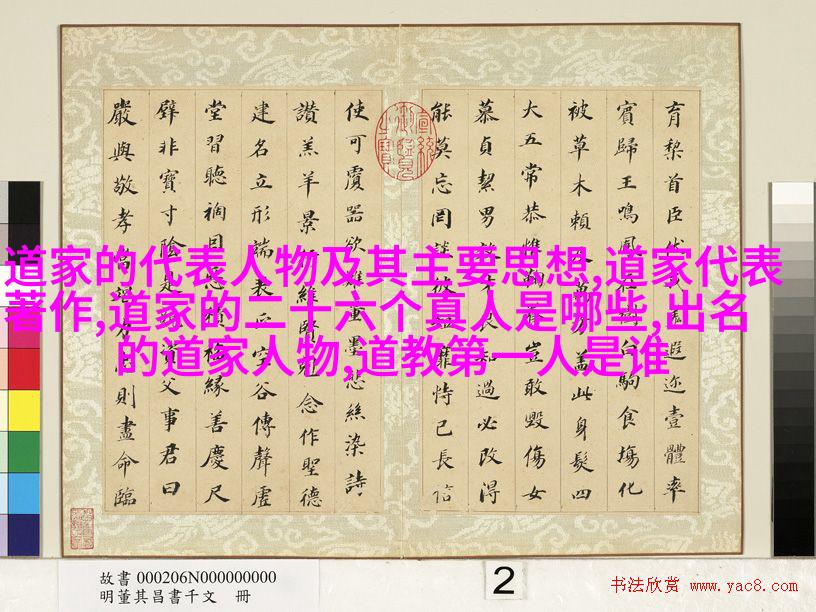 道家的代表人物及其主要思想,道家代表
著作,道家的二十六个真人是哪些,出名
的道家人物,道教第一人是谁
育棃首臣遐迩壹體率
賓歸王鳴鳳白駒食場化
被草木賴方蓋此身髮四
大五常恭豈敢毀傷女
慕貞絜男知過必改得
能莫忘罔靡恃己長信
使可覆器欲量墨悲絲染詩
讚羔羊景維賢念作聖德
建名立形端表正空谷傳聲虛
堂習聽禍因積福緣善慶尺
璧非寶寸陰父事君曰
嚴與敬孝則盡命臨
故書 000206N000000000
明董其昌書千文 冊
2
书法欣赏 www.yac8.com